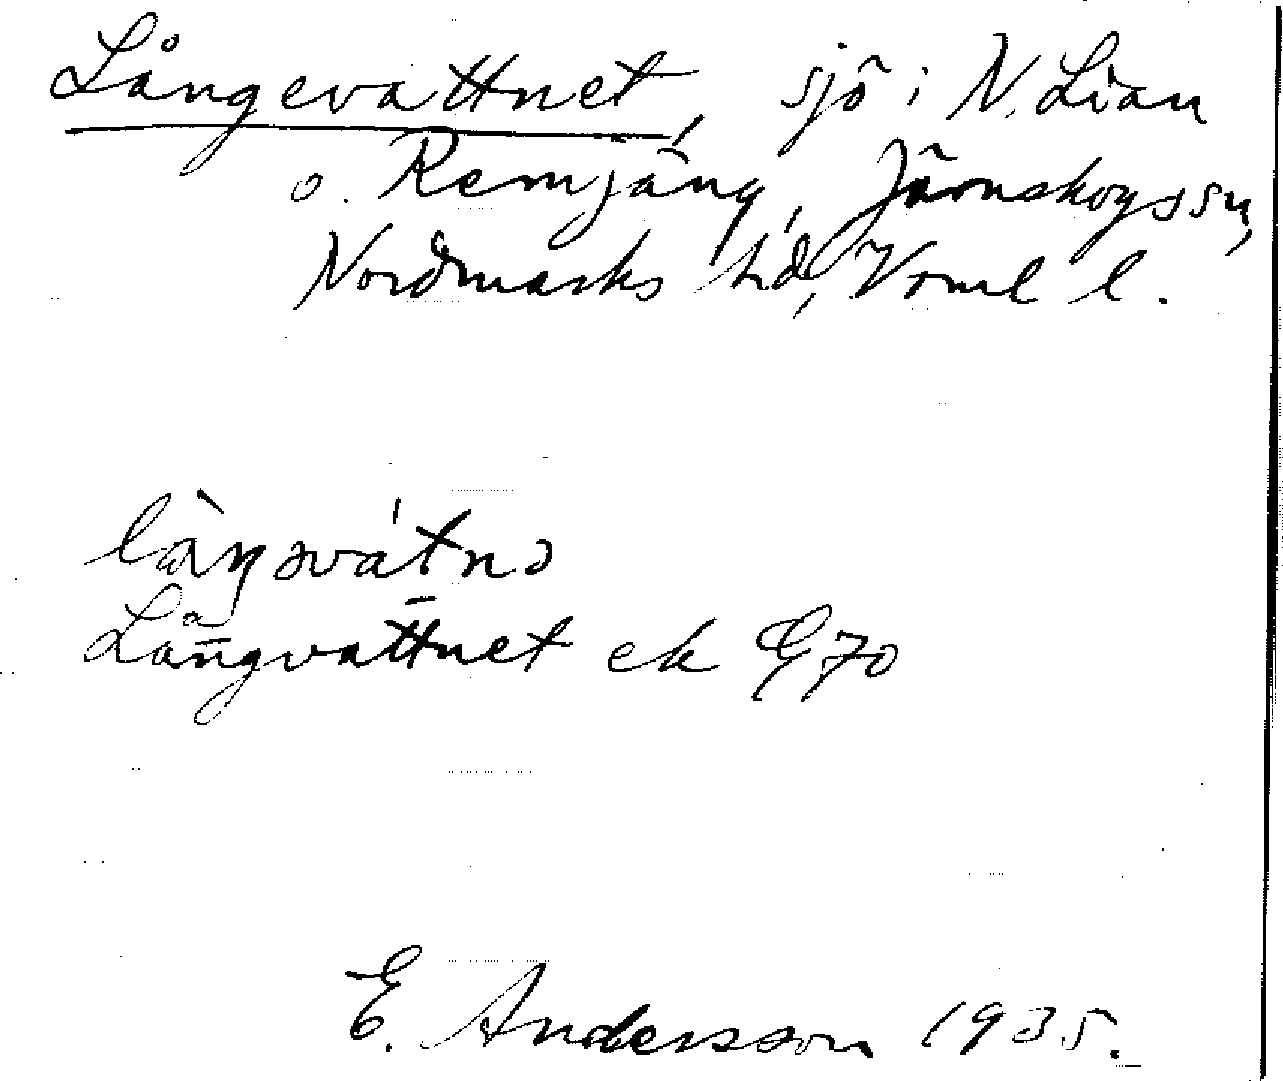 Långevattnet, sjö i N. Lian
o. Remjäng, Järnskogs sn,
Nordmarks hd, Vrml l.
låŋəvátnə
Långvattnet ek G70
E. Andersson 1935.